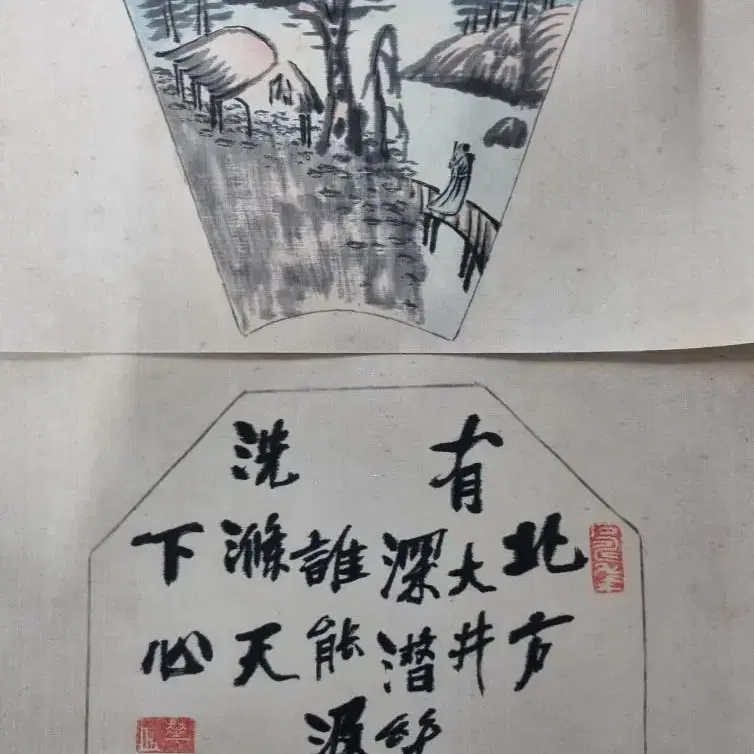 北方
有大井
深潛
誰能
洗滌天
下心